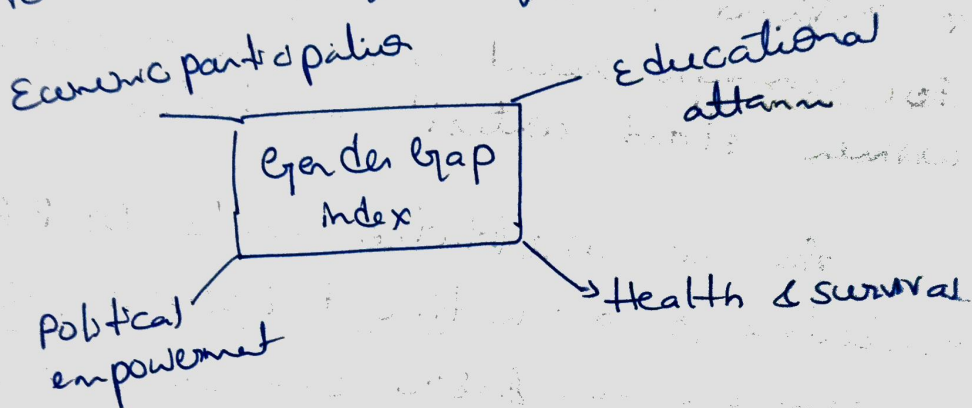 Economic participation
Educational
attainm
Gender Gap
index
Political
empowerment
Health & survival